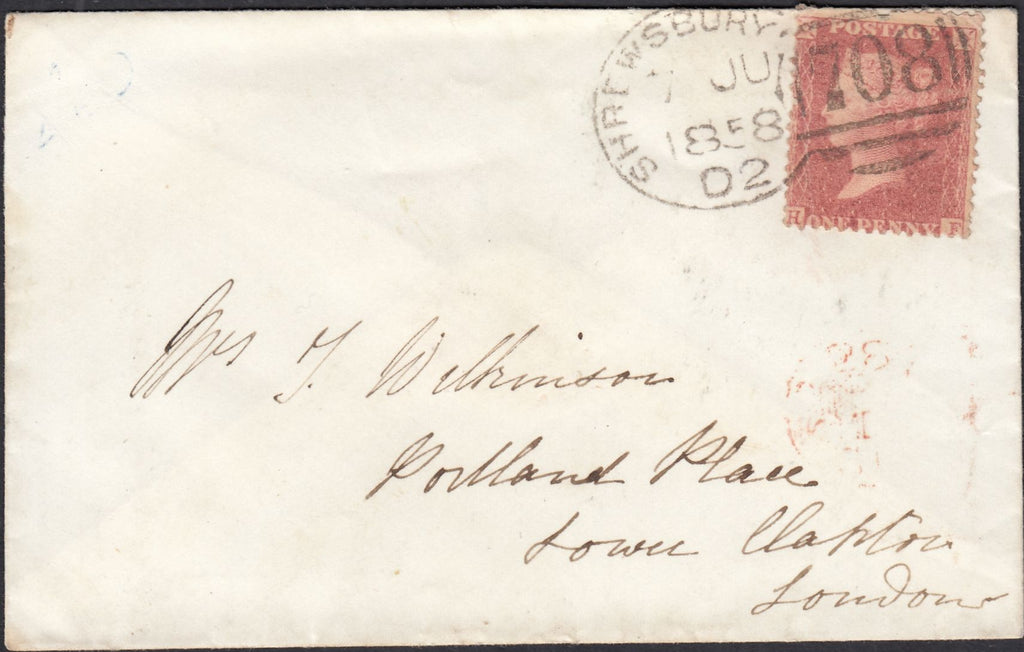 SHREWSBURY
JU
1858
02
708
POSTAGE
ONE PENNY
H F
Mrs J. Wilkinson
Portland Place
Lower Clapton
London